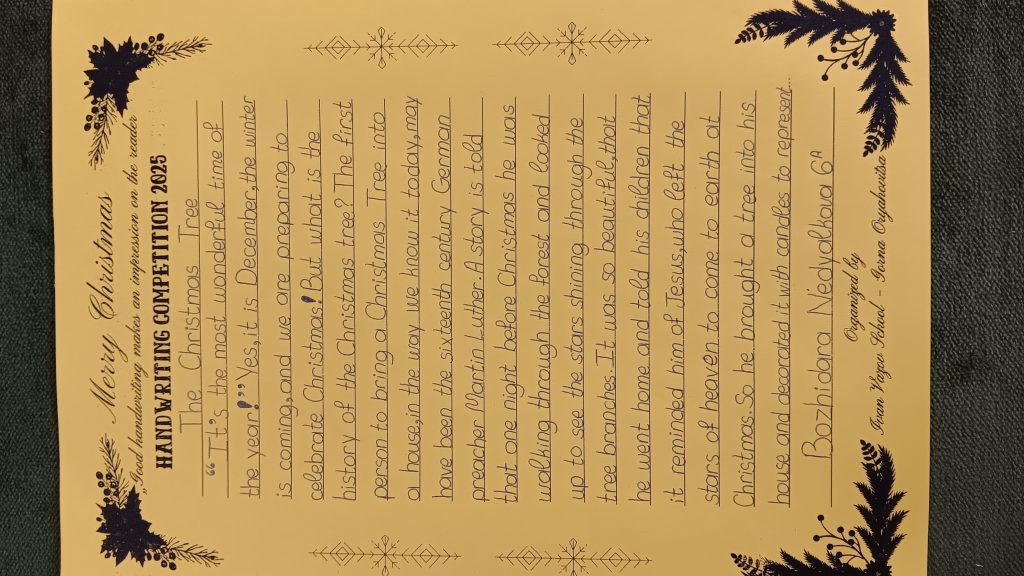 Merry Christmas
„Good handwriting makes an impression on the reader"
HANDWRITING COMPETITION 2025
The Christmas Tree
“It's the most wonderful time of
the year!” Yes, it is December, the winter
is coming, and we are preparing to
celebrate Christmas! But what is the
history of the Christmas tree? The first
person to bring a Christmas Tree into
a house, in the way we know it today, may
have been the sixteenth century German
preacher Martin Luther. A story is told
that one night before Christmas he was
walking through the forest and looked
up to see the stars shining through the
tree branches. It was so beautiful, that
he went home and told his children that
it reminded him of Jesus, who left the
stars of heaven to come to earth at
Christmas. So he brought a tree into his
house and decorated it with candles to represent...
Bozhidara Nedyalkova 6ᴬ
Organized by
Ivan Vazov School - Gorna Oryahovitsa